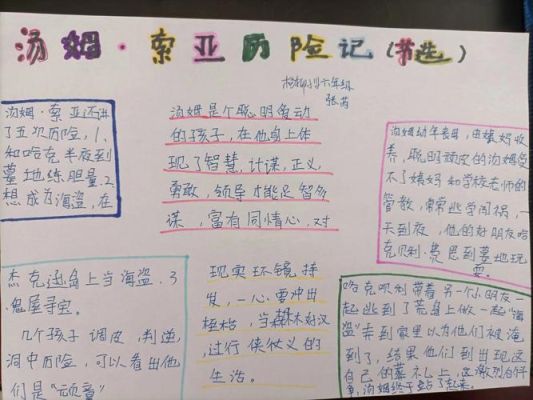 汤姆·索亚历险记(节选)
杨柳小六年级
张芮
汤姆·索亚还进
了五次历险,1、
和哈克半夜到
墓地练胆量.2、
想成为海盗,在
杰克逊岛上当海盗.3
鬼屋寻宝.
几个孩子调皮,判逆,
洞中历险,可以看出他
们是“顽童”
汤姆是个聪明勇动
的孩子,在他身上体
现了智慧,计谋,正义
勇敢,领导才能足智多
谋,富有同情心,对
现实环镜持
发,一心要冲出
梧桔,当森林好汉
过行侠仗义的
生活。
汤姆幼年丧母,由姨妈收
养,聪明顽皮的汤姆受
不了姨妈和学校老师的
管教,常常逃学闯祸,一
天到夜,他的好朋友哈
克贝利·费恩到墓地玩
耍
哈克贝利带着另一个小朋友一
起逃到了荒岛上做一起“海
盗”弄到家里以为他们被淹
到了,结果他们到出现这
自己的葬礼上,这激烈的
汤姆终于站了起来.